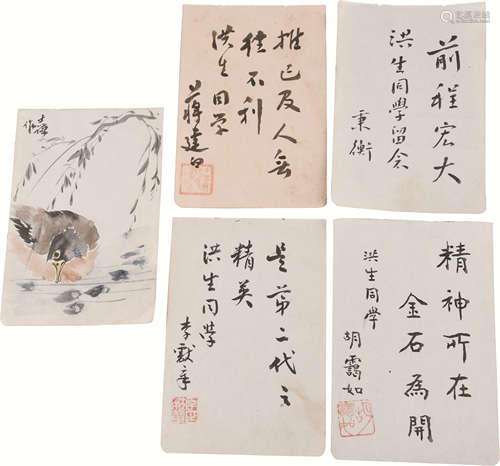 推已及人無
往不利
洪生同學
蔣建白
前程宏大
洪生同學留念
秉衡
是第二代之
精英
洪生同學
李獻章
精神所在
金石為開
洪生同學
胡靄如